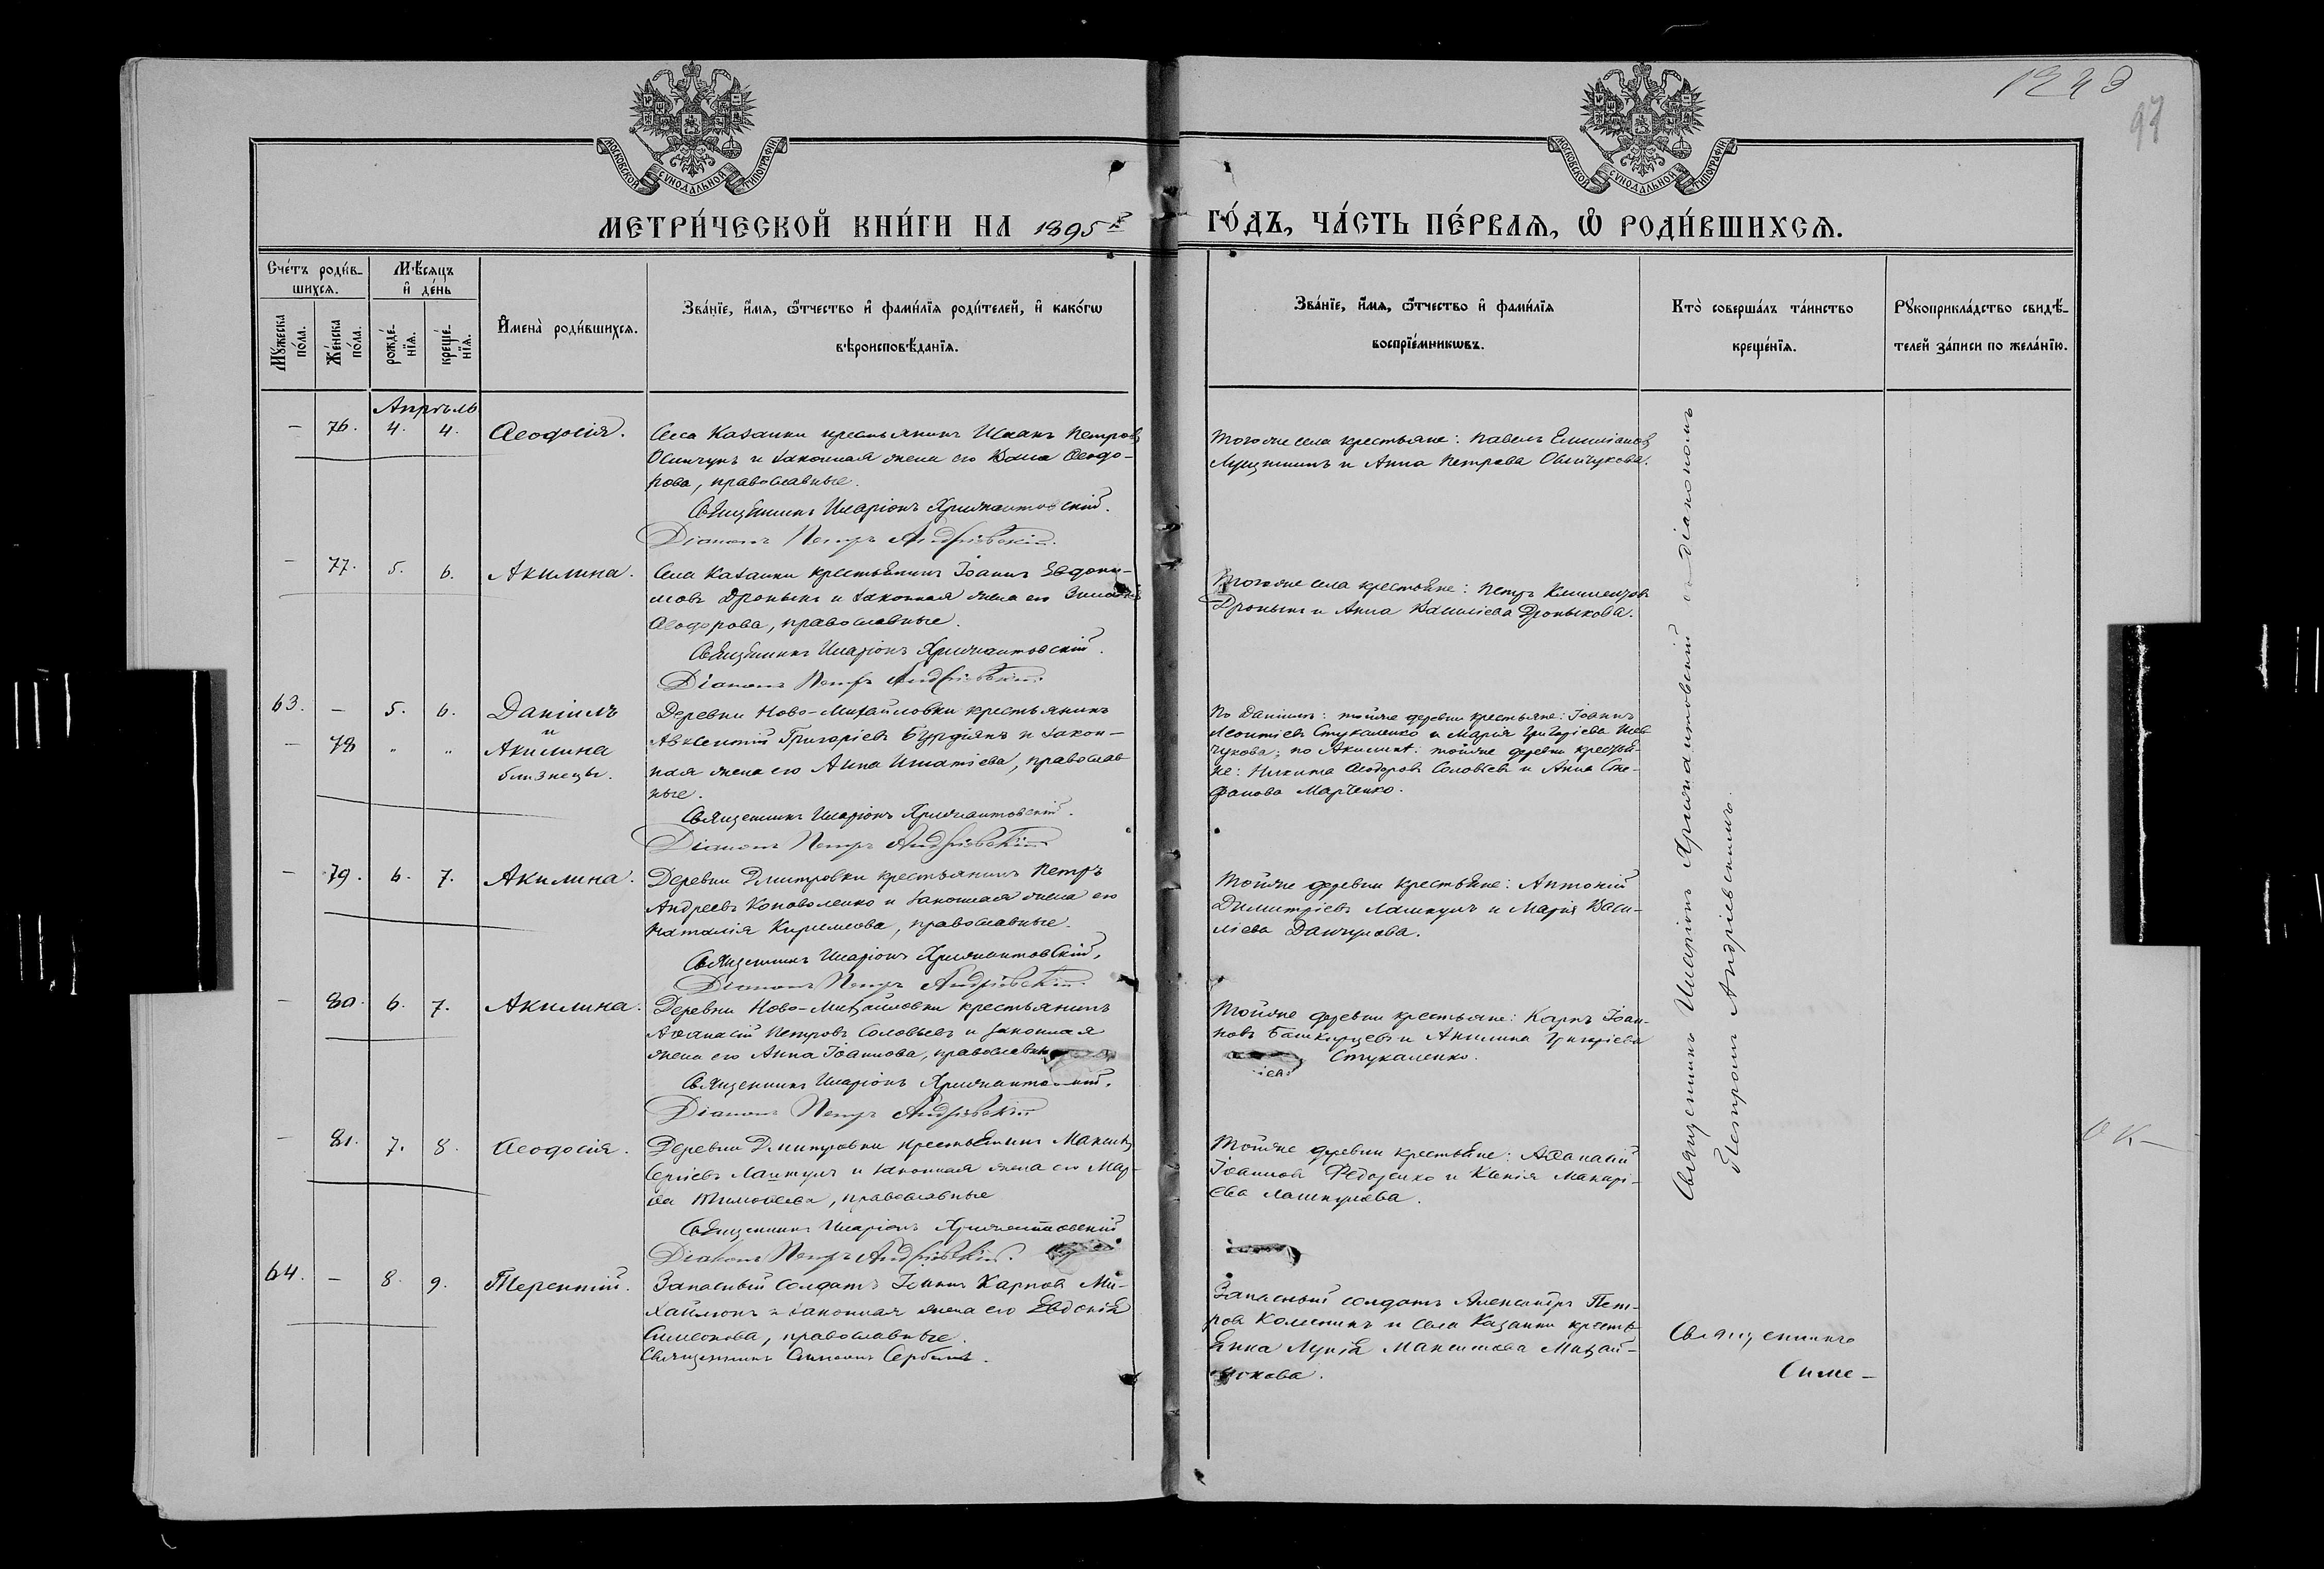 1223
97
МОСКОВСКОЙ СѴНОДАЛЬНОЙ ТИПОГРАФІИ
МОСКОВСКОЙ СѴНОДАЛЬНОЙ ТИПОГРАФІИ
МЕТРИ́ЧЕСКОЙ КНИ́ГИ НА 1895й ГО́ДЪ, ЧА́СТЬ ПЕ́РВАЯ, Ѡ РОДИ́ВШИХСЯ.
Сче́тъ роди́в-
шихся.
Му́жеска по́ла.
Же́нска по́ла.
Мѣ́сяцъ
и де́нь
рожде́-нїя.
креще́-нїя.
И҆мена̀ роди́вшихся.
Зва́нїе, и҆́мя, ѻ҆́тчество и҆ фами́лїя роди́телей, и҆ како́гѡ
вѣроисповѣ́данїя.
Зва́нїе, и҆́мя, ѻ҆́тчество и҆ фами́лїя
воспрїе́мникѡвъ.
Кто̀ соверша́лъ та́инство
креще́нїя.
Рꙋкоприкла́дство свидѣ́-
телей за́писи по жела́нїю.
Апрѣль
– 76. 4. 4. Ѳеодосія.
Села Казанки крестьянинъ Исаакъ Петровъ
Осипчукъ и законная жена его Ѳеодо-
рова, православные.
Священникъ Иларіонъ
Діаконъ Петръ Андріевскій.
Тогоже села крестьяне: Павелъ Емиліановъ
и Анна Петрова
– 77. 5. 6. Акилина.
Села Казанки крестьянинъ Іоаннъ Евдоки-
мовъ Дроныкъ и законная жена его
Ѳеодорова, православные.
Священникъ Иларіонъ
Діаконъ Петръ Андріевскій.
Тогоже села крестьяне: Петръ Климентовъ
Дроныкъ и Анна Василіева Дроныкова.
63. – 5. 6. Даніилъ
и
– 78 " " Акилина
близнецы.
Деревни Ново-Михайловки крестьянинъ
Авксентій Григоріевъ и закон-
ная жена его Анна Игнатіева, православ
ные.
Священникъ Иларіонъ
Діаконъ Петръ Андріевскій
По Даніилѣ: тойже деревни крестьяне: Іоаннъ
Леонтіевъ Стукаленко и Марія Григоріева Шев
чукова; по Акилинѣ: тойже деревни крестья-
не: Никита Ѳеодоровъ Соловьевъ и Анна Сте-
фанова Марченко.
– 79. 6. 7. Акилина.
Деревни Дмитровки крестьянинъ Петръ
Андреевъ Коноваленко и законная жена его
Наталія Кириллова, православные.
Священникъ Иларіонъ
Діаконъ Петръ Андріевскій.
Тойже деревни крестьяне: Антоній
Димитріевъ Лашкулъ и Марія Васи-
ліева
– 80. 6. 7. Акилина.
Деревни Ново-Михайловки крестьянинъ
Аѳанасій Петровъ Соловьевъ и законная
жена его Анна Іоаннова, православные
Священникъ Иларіонъ
Діаконъ Петръ Андріевскій
Тойже деревни крестьяне: Карпъ Іоан-
новъ Башкирцевъ и Акилина Григоріева
Стукаленко.
– 81. 7. 8. Ѳеодосія.
Деревни Дмитровки крестьянинъ Максимъ
Сергіевъ Лашкулъ и законная жена его Мар-
ѳа Тимоѳеева, православные
Священникъ Иларіонъ
Діаконъ Петръ Андріевскій.
Тойже деревни крестьяне: Аѳанасій
Іоанновъ Федоренко и Ксенія Макарі-
ева Лашкулова.
64. – 8. 9. Терентій.
Запасный солдатъ Іоаннъ Карповъ Ми-
хайлюкъ и законная жена его Евдокія
Симеонова, православные.
Священникъ Симеонъ
Запасный солдатъ Александръ Пет-
ровъ и села Казанки кресть-
янка Лукія Максимова Михай-
люкова.
Священникъ
Симе-
Священникъ Иларіонъ съ діакономъ
Петромъ Андріевскимъ.